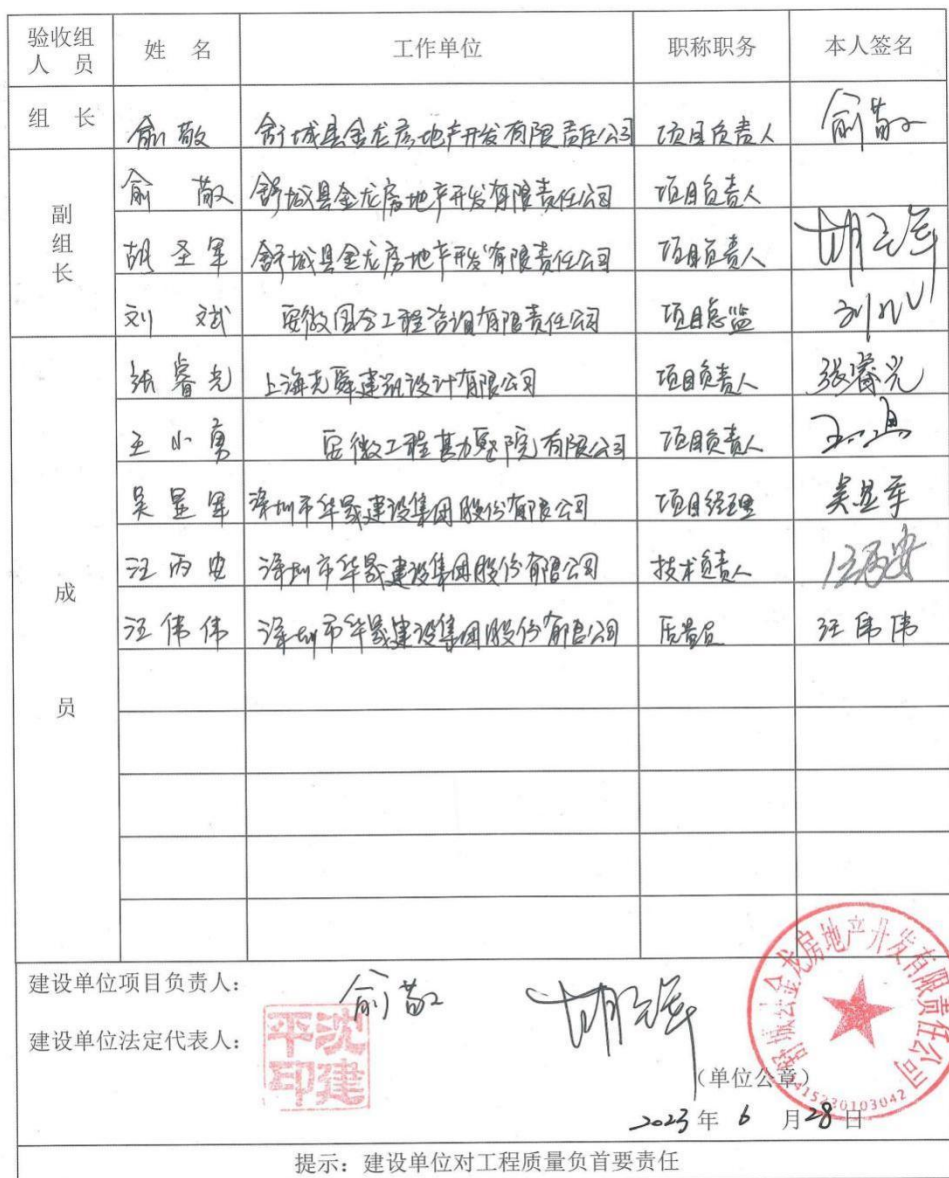 验收组人员 姓 名 工作单位 职称职务 本人签名
组 长 俞敬 舒城县金龙房地产开发有限责任公司 项目负责人 俞敬
副组长 俞 敬 舒城县金龙房地产开发有限责任公司 项目负责人
胡圣军 舒城县金龙房地产开发有限责任公司 项目负责人 胡圣军
刘 斌 安徽国合工程咨询有限责任公司 项目总监 刘斌
成员 张睿光 上海尧舜建筑设计有限公司 项目负责人 张睿光
王小勇 安徽工程勘察院有限公司 项目负责人
吴显军 深圳市华晟建设集团股份有限公司 项目经理 吴显军
汪丙安 深圳市华晟建设集团股份有限公司 技术负责人 汪丙安
汪伟伟 深圳市华晟建设集团股份有限公司 质量员 汪伟伟
建设单位项目负责人: 俞敬 胡圣军
建设单位法定代表人: 沈建平印
舒城县金龙房地产开发有限责任公司
(单位公章)
2023年 6 月28日
提示:建设单位对工程质量负首要责任